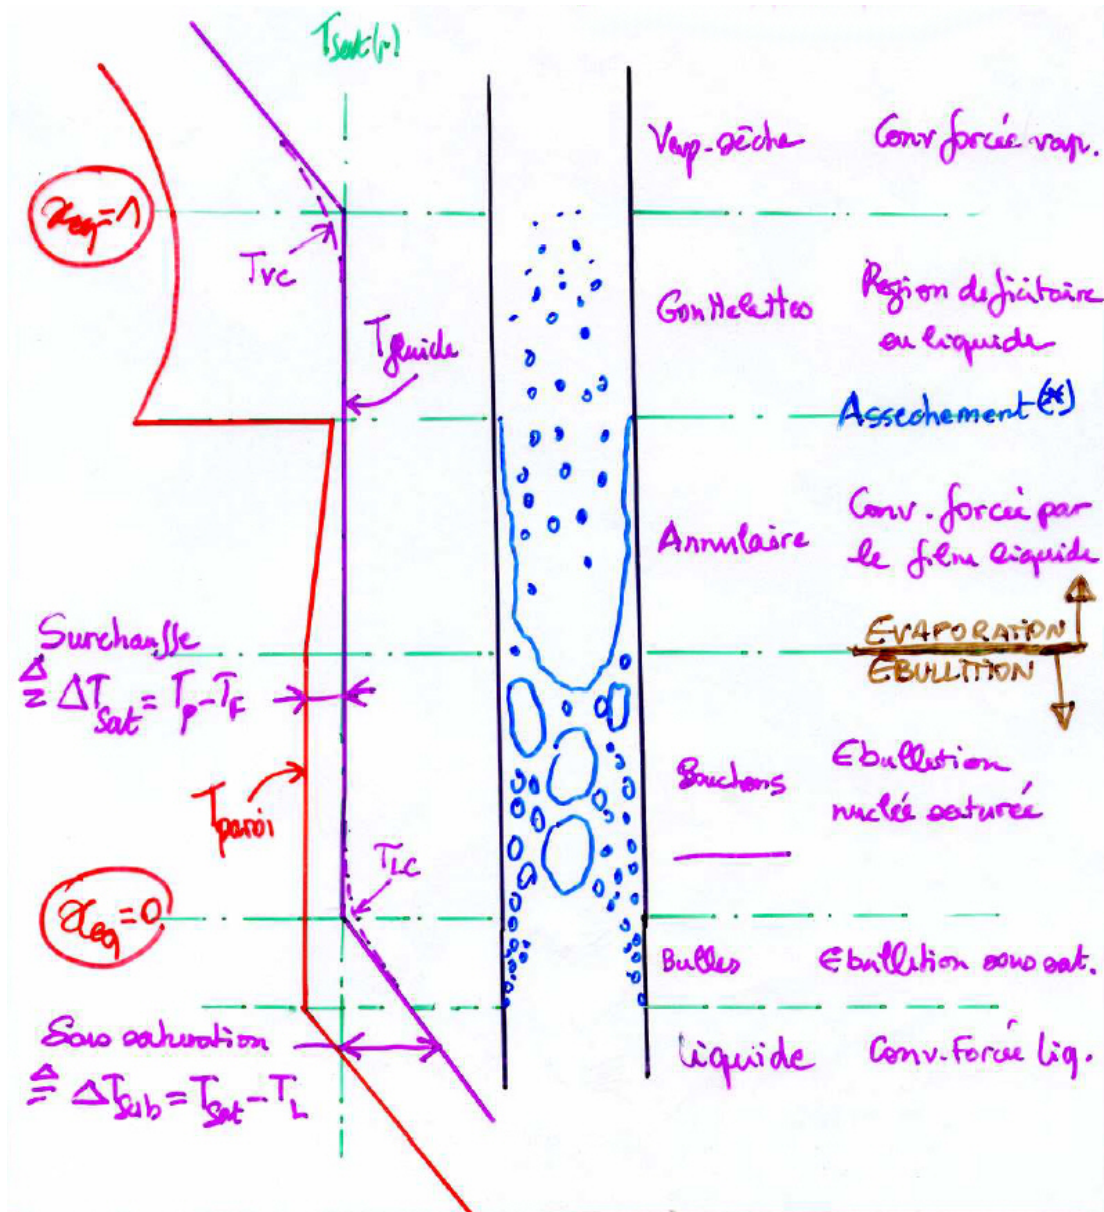 Tsat(p)
Vap. sèche Conv forcée vap.
xeq=1
TVC
Gouttelettes Region deficitaire
en liquide
Tfluide
Assechement (*)
Annulaire Conv. forcée par
le film liquide
EVAPORATION
EBULLITION
Surchauffe
≜ ΔTsat = Tp - TF
Bouchons Ebullition
nuclée saturée
Tparoi
TLC
xeq=0
Bulles Ebullition sous sat.
Sous saturation
≜ ΔTsub = Tsat - TL
liquide Conv. Forcée liq.